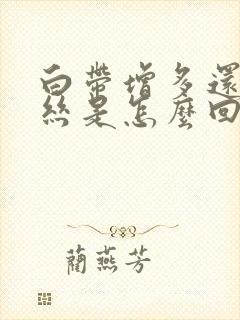 白帶增多還
絲是怎麼回
藺燕芳